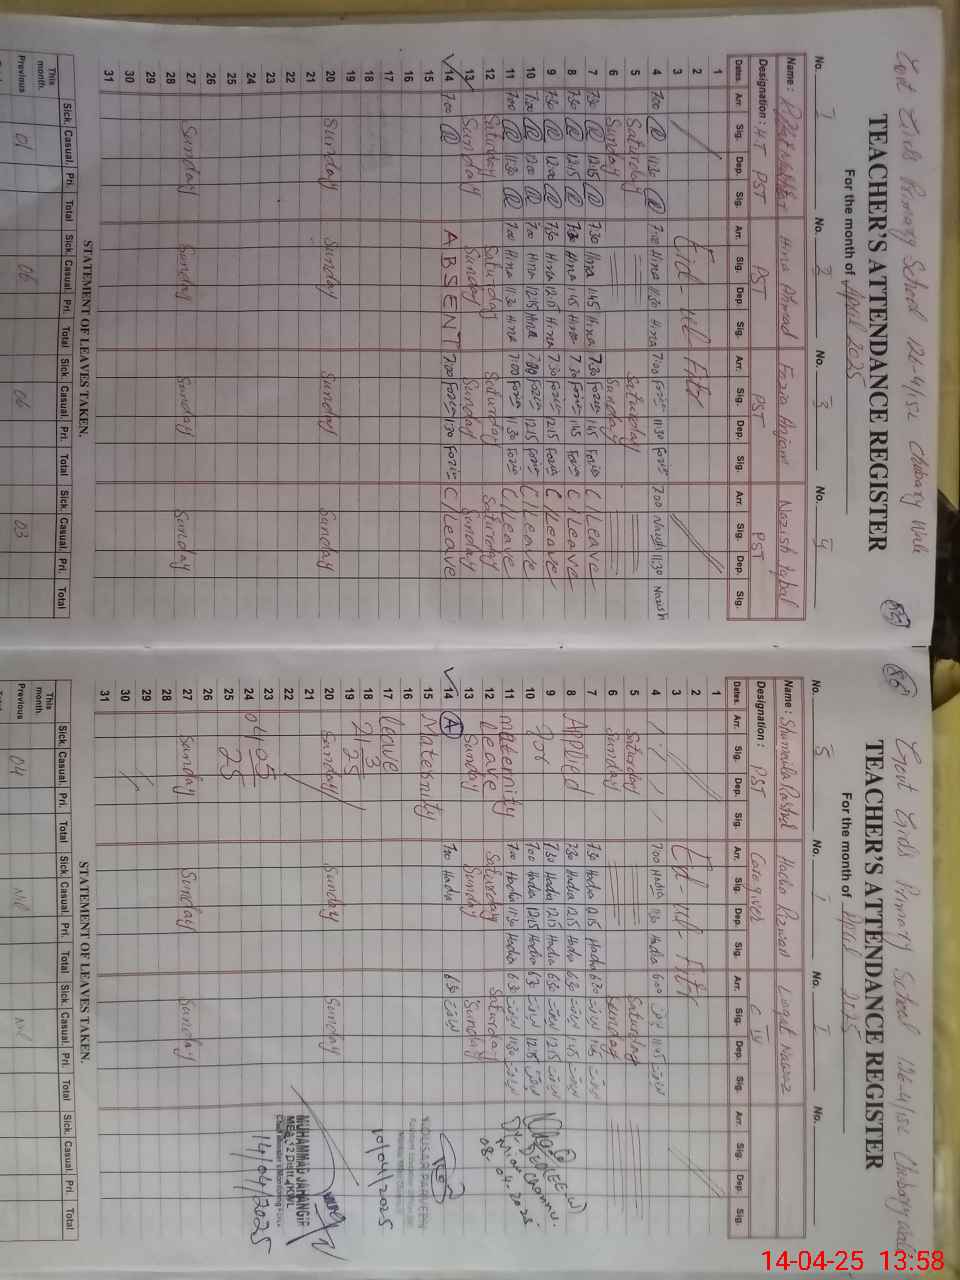 Govt Girls Primary School 126-4/15L Chubary Wala
TEACHER'S ATTENDANCE REGISTER
For the month of April 2025
No. 1 No. 2 No. 3 No. 4
Name: Hina Ahmad Fozia Anjam Nazish Iqbal
Designation: HT PST PST PST PST
Dates. Arr. Sig. Dep. Sig. Arr. Sig. Dep. Sig. Arr. Sig. Dep. Sig. Arr. Sig. Dep. Sig.
1
2 Eid-ul-Fitr
3
4 7:00 11:30 7:00 Hina 11:30 Hina 7:00 Fozia 11:30 Fozia 7:00 Nazish 11:30 Nazish
5 Saturday Saturday
6 Sunday Sunday
7 7:30 12:15 7:30 Hina 1:45 Hina 7:30 Fozia 1:45 Fozia C/Leave
8 7:30 12:15 7:30 Hina 1:45 Hina 7:30 Fozia 1:45 Fozia C/Leave
9 7:30 12:00 7:30 Hina 12:15 Hina 7:30 Fozia 12:15 Fozia C/Leave
10 7:00 12:00 7:00 Hina 12:15 Hina 7:00 Fozia 12:15 Fozia C/Leave
11 7:00 11:30 7:00 Hina 11:30 Hina 7:00 Fozia 11:30 Fozia C/Leave
12 Saturday Saturday Saturday Saturday
13 Sunday Sunday Sunday Sunday
14 7:00 ABSENT 7:00 Fozia 1:30 Fozia C/Leave
15
16
17
18
19
20 Sunday Sunday Sunday Sunday
21
22
23
24
25
26
27 Sunday Sunday Sunday Sunday
28
29
30
31
STATEMENT OF LEAVES TAKEN.
Sick. Casual. Pri. Total Sick. Casual. Pri. Total Sick. Casual. Pri. Total Sick. Casual. Pri. Total
This month.
Previous 01 06 06 03
86
Govt Girls Primary School 126-4/15L Chubary Wala
TEACHER'S ATTENDANCE REGISTER
For the month of April 2025
No. 5 No. 1 No. 1 No.
Name: Shumaila Rashid Hadia Rizwan Liaqat Nawaz
Designation: PST Caregiver C IV
Dates. Arr. Sig. Dep. Sig. Arr. Sig. Dep. Sig. Arr. Sig. Dep. Sig. Arr. Sig. Dep. Sig.
1
2 Eid-ul-Fitr
3
4 7:00 Hadia Hadia 6:00 11:45
5 Saturday Saturday
6 Sunday Sunday
7 7:30 Hadia 12:15 Hadia 6:30 1:45
8 Applied 7:30 Hadia 12:15 Hadia 6:30 1:45
9 for 7:30 Hadia 12:15 Hadia 6:30 12:15
10 7:00 Hadia 12:15 Hadia 6:30 12:15
11 maternity 7:00 Hadia 11:30 Hadia 6:30 11:30
12 Leave Saturday Saturday
13 Sunday Sunday Sunday
14 A 7:00 Hadia 6:30
15 Maternity
16
17 leave
18
19 21 3 25
20 Sunday Sunday Sunday
21
22
23
24 04 05
25 25
26
27 Sunday Sunday Sunday
28
29
30
31
08-04-2025
KOUSAR PARVEEN
10/04/2025
MUHAMMAD JAHANGIR
14/04/2025
STATEMENT OF LEAVES TAKEN.
Sick. Casual. Pri. Total Sick. Casual. Pri. Total Sick. Casual. Pri. Total Sick. Casual. Pri. Total
This month.
Previous 04 Nil Nil
14-04-25 13:58